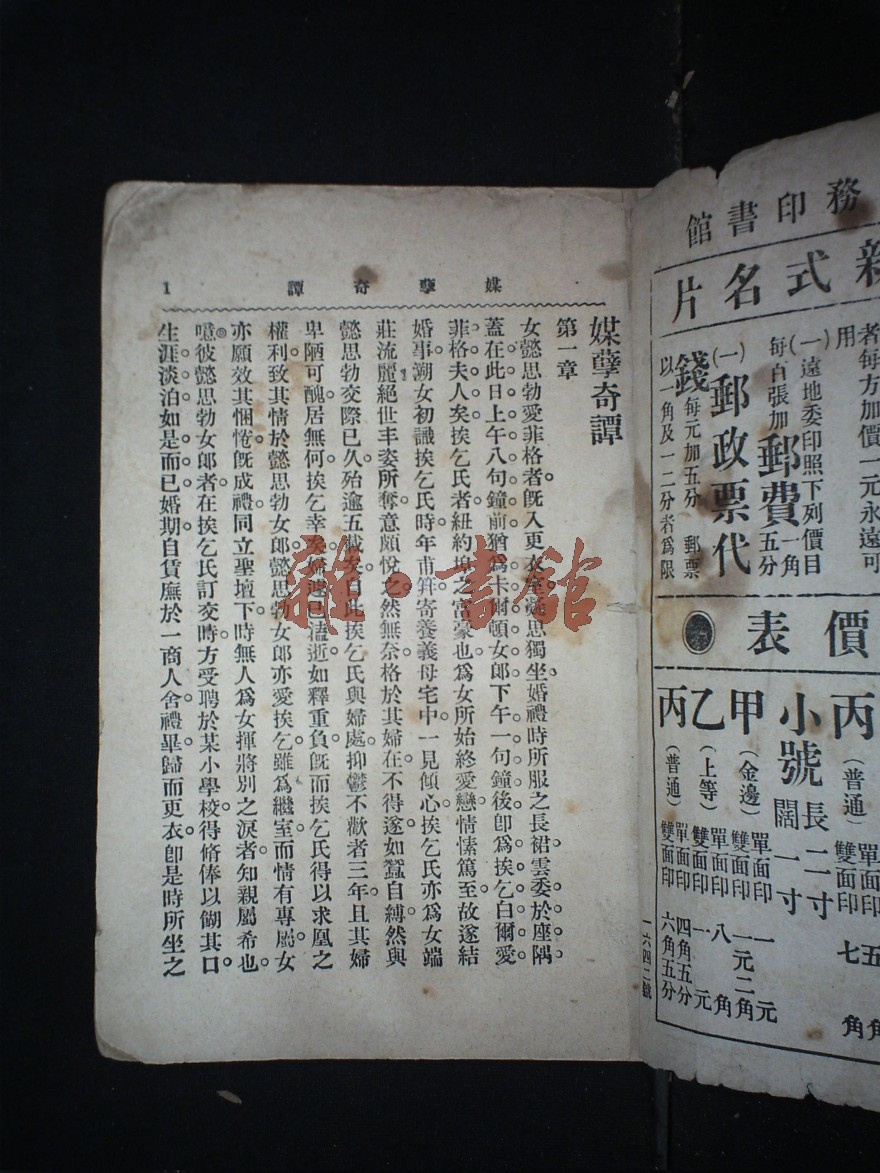 務印書館
新式名片
者每方加價一元永遠可
用
(一)遠地委印照下列價目
每百張加郵費一角五分
(一)郵政票代
錢每元加五分郵票
以一角及一二分者爲限
價表
丙(普通)單面印 五角
雙面印 七角
小號長二寸闊一寸
甲(金邊)單面印 一元
雙面印 一元二角
乙(上等)單面印 八角
雙面印 一元
丙(普通)單面印 四角五分
雙面印 六角五分
一六四二號
媒孽奇譚 1
媒孽奇譚
第一章
女懿思勃愛菲格者旣入更衣室凝思獨坐婚禮時所服之長裙雲委於座隅
蓋在此日上午八句鐘前猶爲卡爾頓女郎下午一句鐘後卽爲挨乞白爾愛
菲格夫人矣挨乞氏者紐約埠之富豪也爲女所始終愛戀情愫篤至故遂結
婚事溯女初識挨乞氏時年甫笄寄養義母宅中一見傾心挨乞氏亦爲女端
莊流麗絕世丰姿所奪意頗悅之然無奈格於其婦在不得遂如蠶自縛然與
懿思勃交際已久殆逾五載矣自此挨乞氏與婦處抑鬱不歡者三年且其婦
卑陋可醜居無何挨乞幸矣婦遽已溘逝如釋重負旣而挨乞氏得以求凰之
權利致其情於懿思勃女郎懿思勃女郎亦愛挨乞雖爲繼室而情有專屬女
亦願效其悃愊旣成禮同立聖壇下時無人爲女揮將別之淚者知親屬希也
噫彼懿思勃女郎者在挨乞氏訂交時方受聘於某小學校得脩俸以餬其口
生涯淡泊如是而已婚期自賃廡於一商人舍禮畢歸而更衣卽是時所坐之
雜·書館